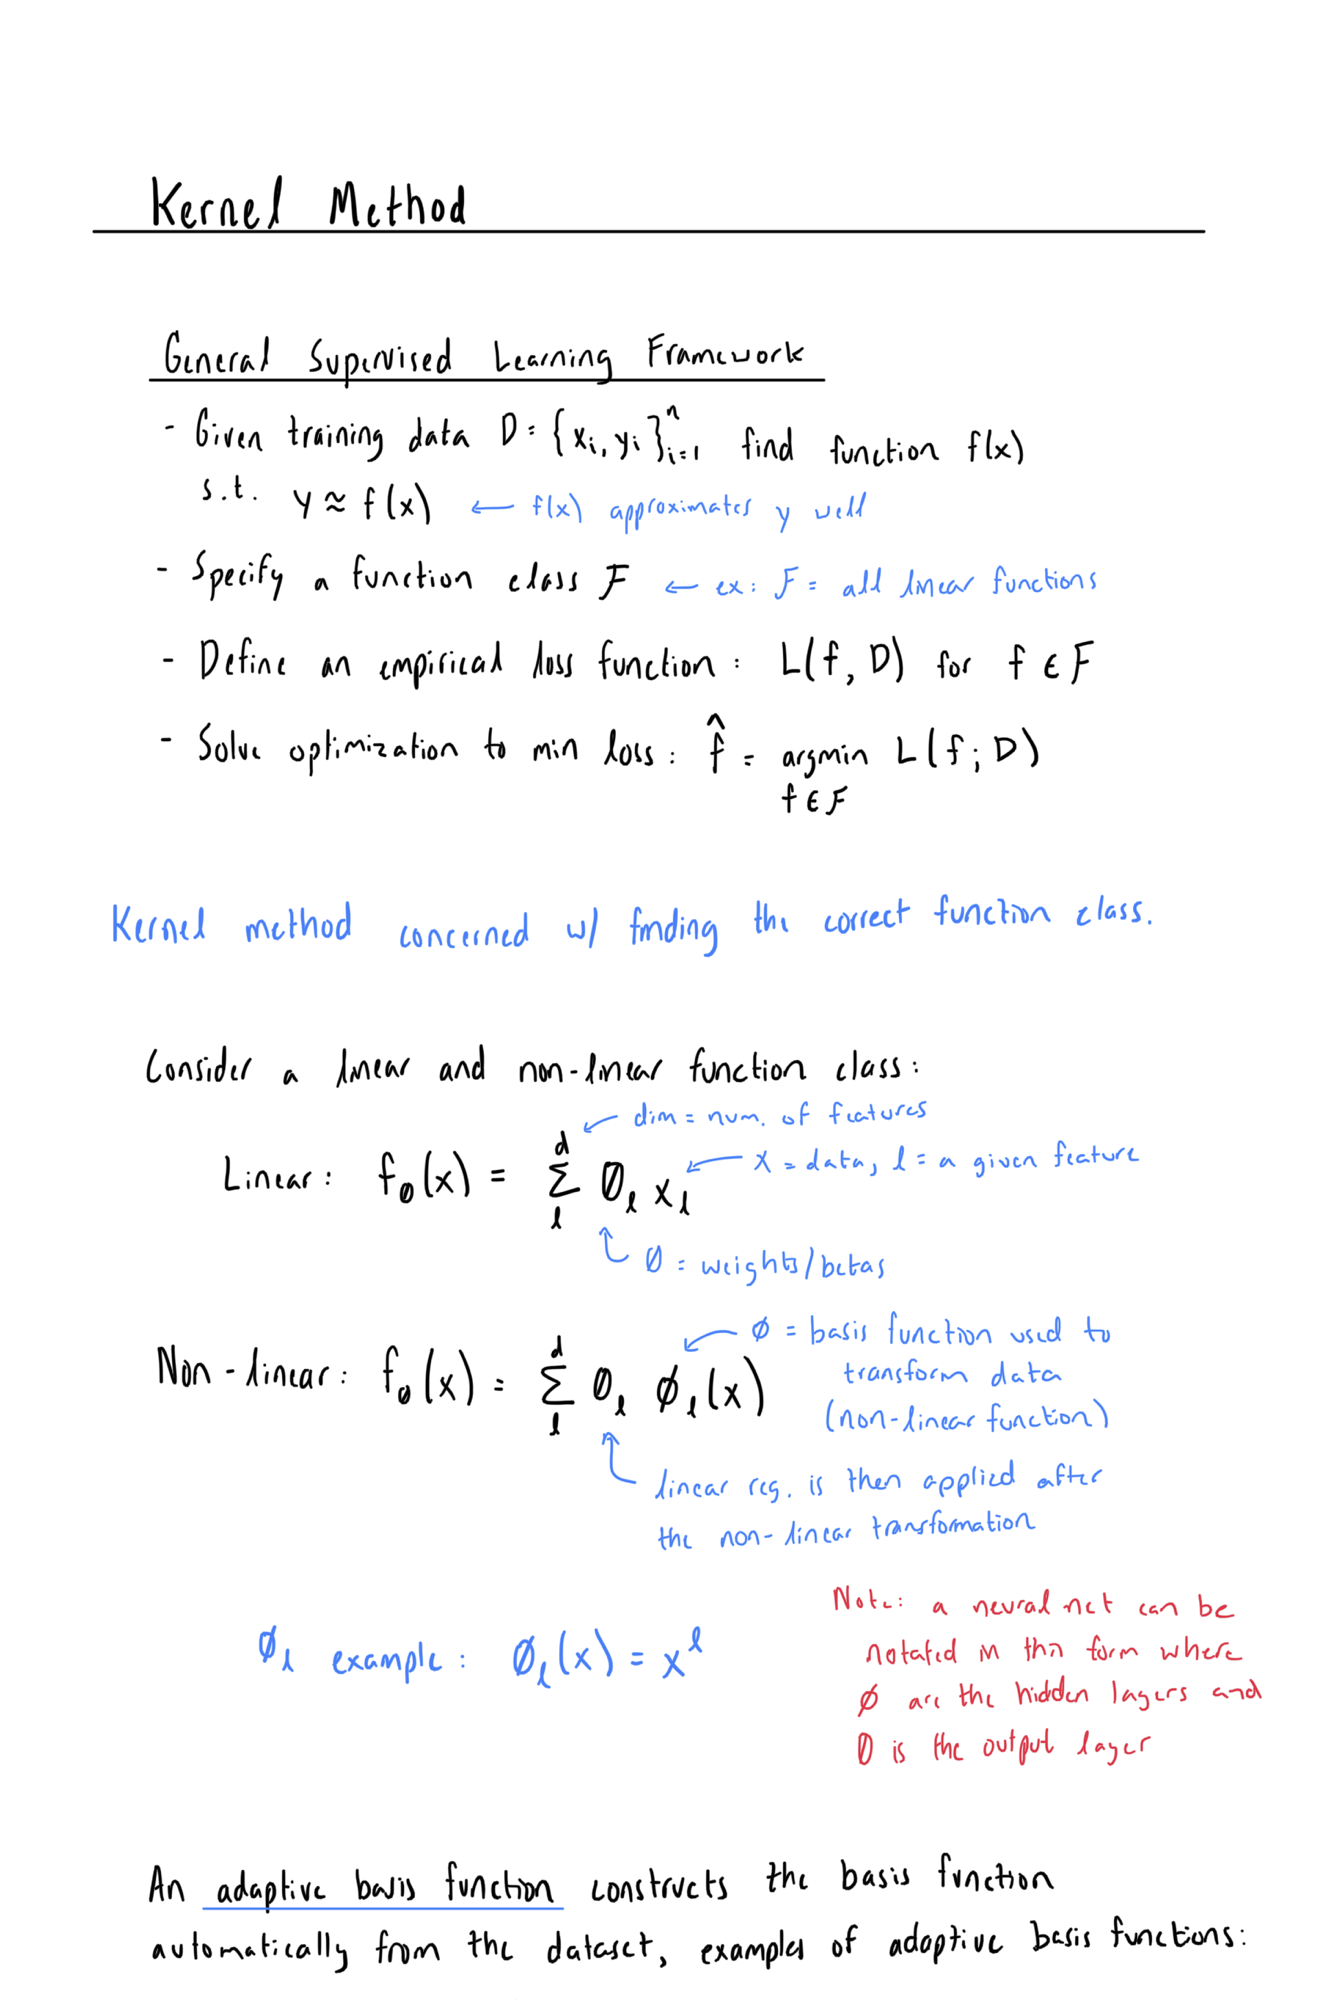 Kernel Method
General Supervised Learning Framework
- Given training data D = {xᵢ, yᵢ}ⁿᵢ₌₁ find function f(x)
s.t. y ≈ f(x) ← f(x) approximates y well
- Specify a function class F ← ex: F = all linear functions
- Define an empirical loss function: L(f, D) for f ∈ F
- Solve optimization to min loss: f̂ = argmin L(f; D)
f ∈ F
Kernel method concerned w/ finding the correct function class.
Consider a linear and non-linear function class:
← dim = num. of features
Linear: f_θ(x) = Σ_l^d θ_l x_l ← x = data, l = a given feature
θ = weights/betas
Non-linear: f_θ(x) = Σ_l^d θ_l ϕ_l(x) ← ϕ = basis function used to
transform data
(non-linear function)
linear reg. is then applied after
the non-linear transformation
ϕ_l example: ϕ_l(x) = x^l
Note: a neural net can be
notated in this form where
ϕ are the hidden layers and
θ is the output layer
An adaptive basis function constructs the basis function
automatically from the dataset, examples of adaptive basis functions: